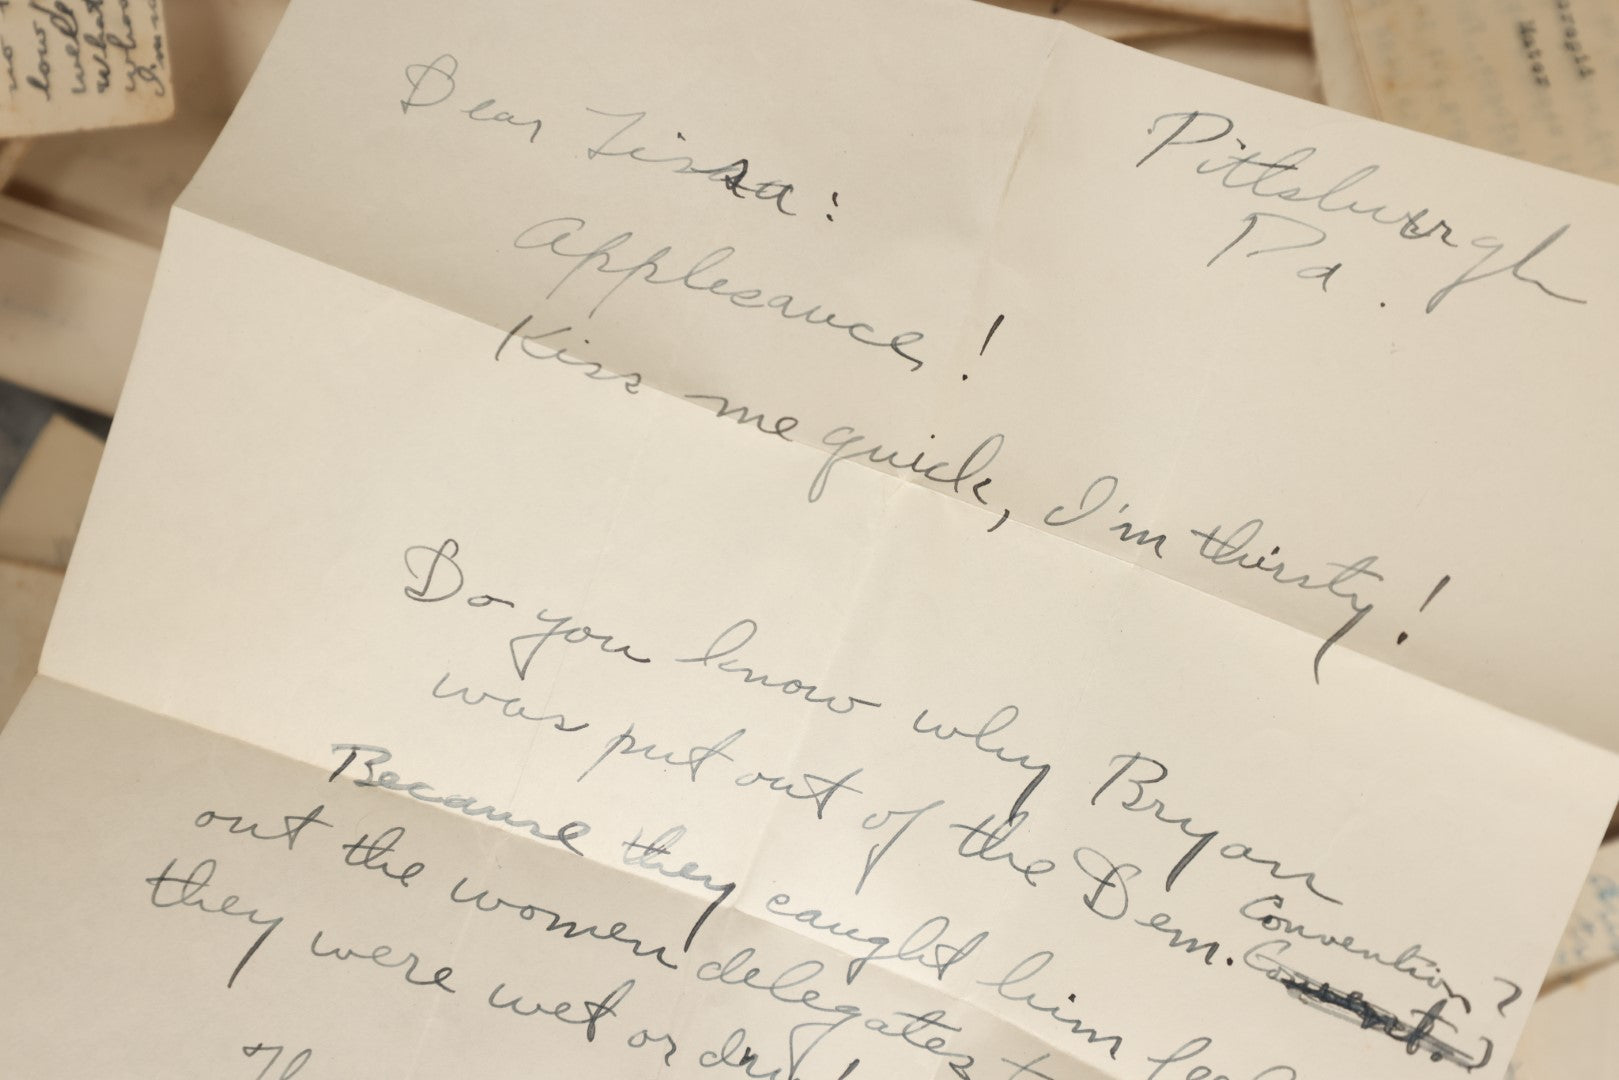 Pittsburgh
Pa.
Dear Lissa:
Applesauce!
Kiss me quick, I'm thirsty!
Do you know why Bryan
was put out of the Dem. Convention?
Because they caught him
out the women delegates
they were wet or dry!